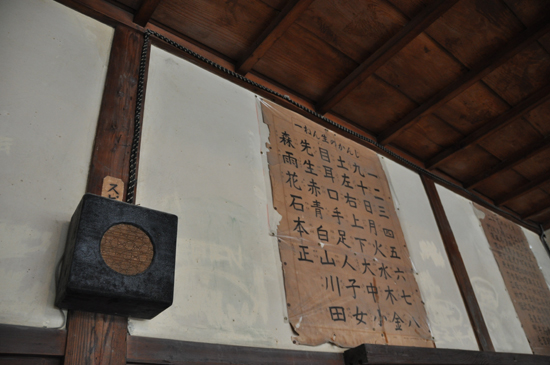 一ねん生のかんじ
一二三四五六七八
九十日月火水木金
土左右上下大中小
目耳口手足人子女
先生赤青白山川田
森雨花石本正